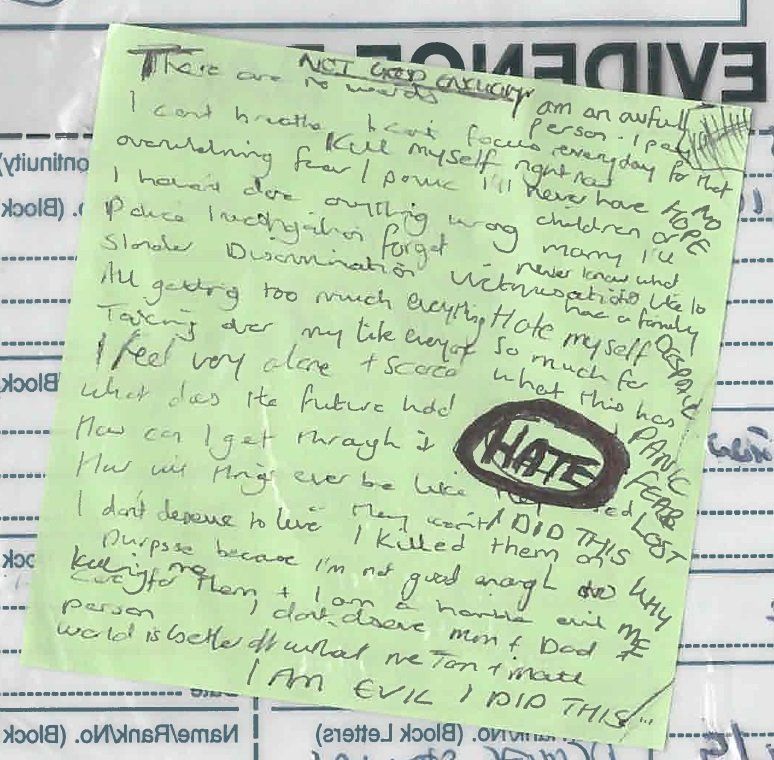 EVIDENCE
NOT GOOD ENOUGH
There are no words
I am an awful person. I pay
I can't breathe I can't focus everyday for that
Kill myself right now
overwhelming fear / panic I'll never have
NO HOPE
I haven't done anything wrong children or
Police Investigation forget marry I'll
never know what
Slander Discrimination Victimisation it's like to
have a family
All getting too much everything Hate myself
DESPAIR
Taking over my life everyday so much for
I feel very alone + scared what this has
What does the future hold
PANIC
How can I get through it
HATE
FEAR
How will things ever be like
LOST
I don't deserve to live They I DID THIS
I killed them on
purpose because I'm not good enough to
WHY
care for them + I am a horrible evil
ME
person I don't deserve mum + Dad +
world is better off without me Tom + matt
I AM EVIL I DID THIS
Name/Rank/No. (Block
No. (Block Letters)